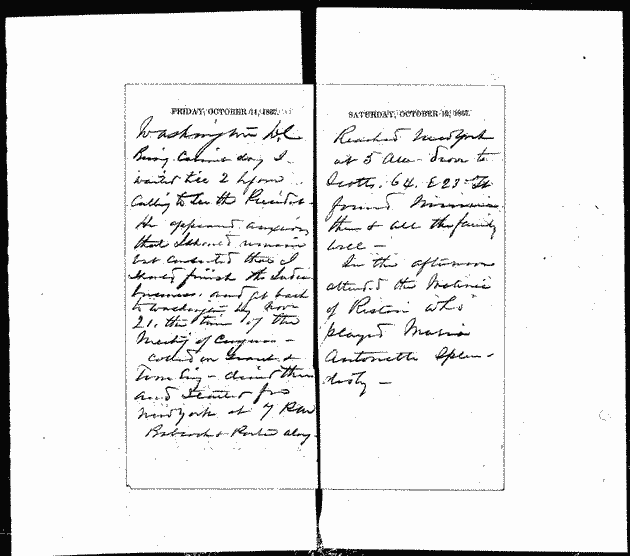 FRIDAY, OCTOBER 11, 1867.
Washington D.C.
Being Cabinet day I
waited till 2 before
Calling to See the President.
He appeared anxious
that I should remain
but consented that I
should finish the Indian
business, and get back
to Washington by Nov
21, the time of the
Meeting of Congress –
Called on Grant &
Tom Ewing – dined there
and Started for
New York at 7 P.M.
Babcock & Porter along.
SATURDAY, OCTOBER 12, 1867.
Reached New York
at 5 A.M. drove to
Scotts. 64. E 23 St
found Minnie
there & all the family
well –
In the afternoon
attended the Matinee
of Ristori who
played Maria
Antoinette Splen-
didly –